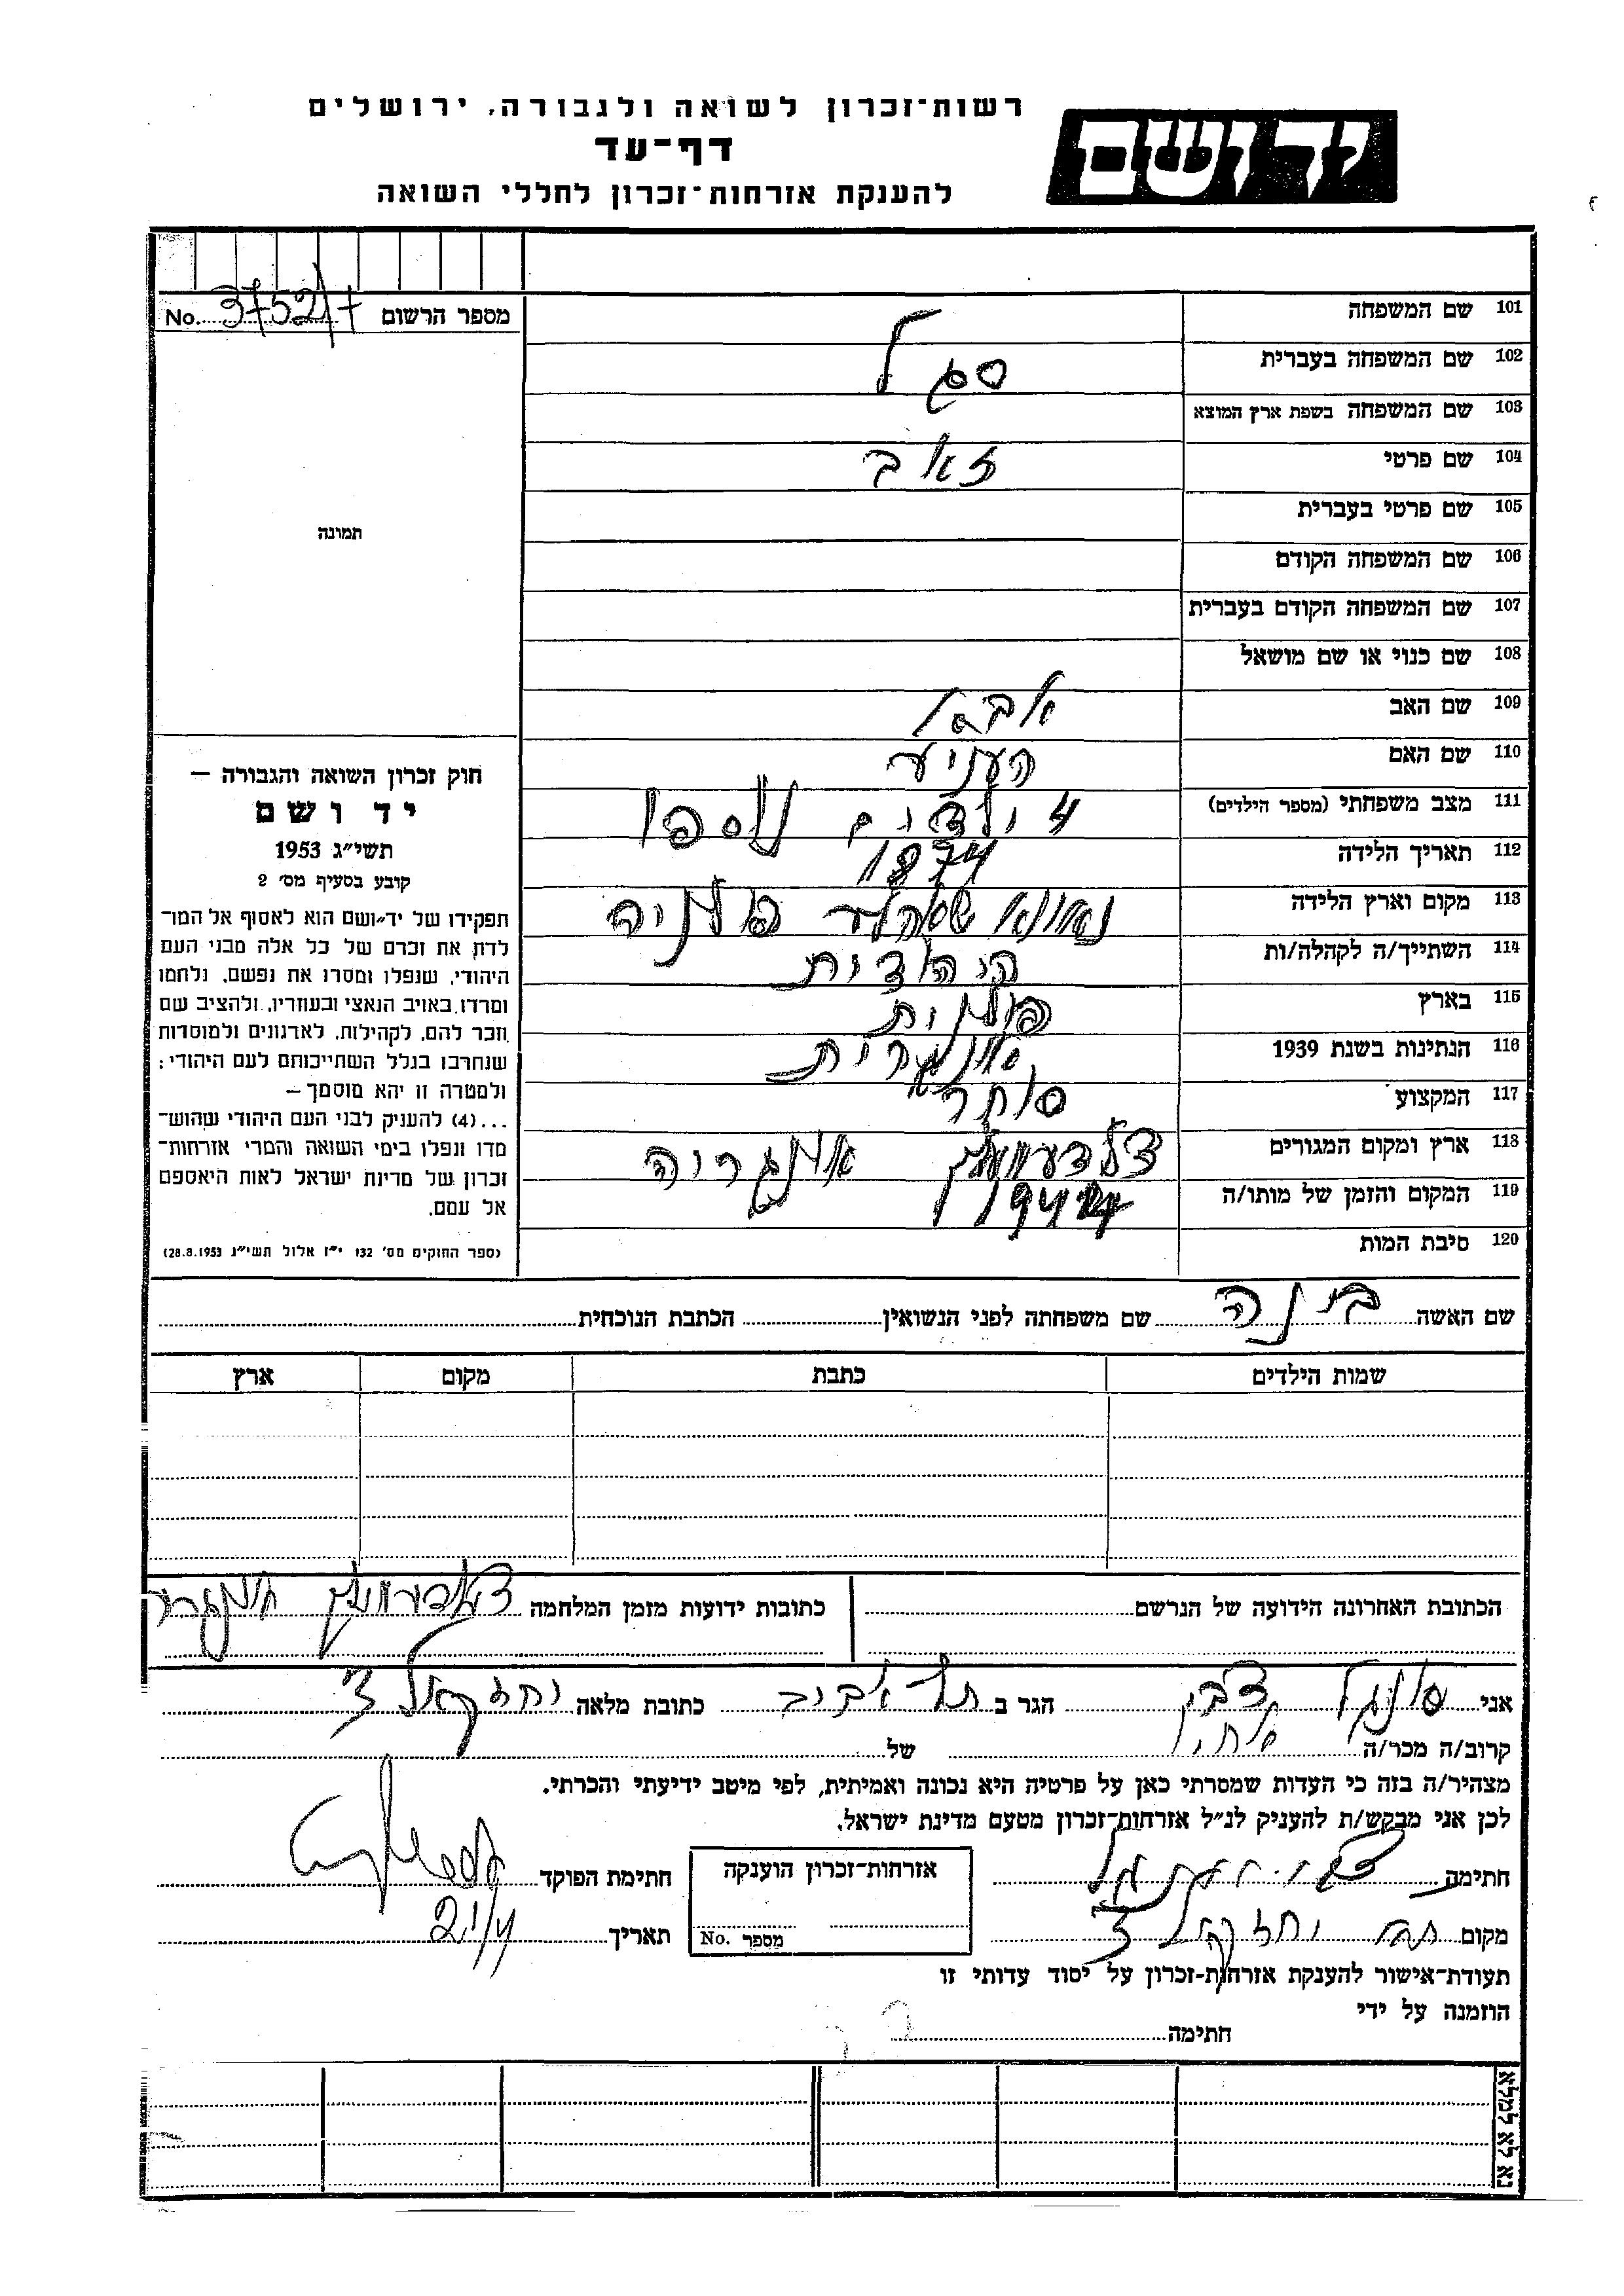 רשות־זכרון לשואה ולגבורה, ירושלים
יד ושם
דף־עד
להענקת אזרחות־זכרון לחללי השואה
No. 3752/7 מספר הרשום
תמונה
101 שם המשפחה
102 שם המשפחה בעברית סגל
103 שם המשפחה בשפת ארץ המוצא
104 שם פרטי זאב
105 שם פרטי בעברית
106 שם המשפחה הקודם
107 שם המשפחה הקודם בעברית
108 שם כנוי או שם מושאל
109 שם האב
110 שם האם
111 מצב משפחתי (מספר הילדים) 4 ילדים נוספו
112 תאריך הלידה 1874
113 מקום וארץ הלידה פולניה
114 השתייך/ה לקהלה/ות היהדות
115 בארץ פולנית
116 הנתינות בשנת 1939 אונגרית
117 המקצוע סוחר
118 ארץ ומקום המגורים אונגריה
119 המקום והזמן של מותו/ה 1944
120 סיבת המות
חוק זכרון השואה והגבורה —
יד ושם
תשי״ג 1953
קובע בסעיף מס׳ 2
תפקידו של יד־ושם הוא לאסוף אל המו־
לדת את זכרם של כל אלה מבני העם
היהודי, שנפלו ומסרו את נפשם, נלחמו
ומרדו באויב הנאצי ובעוזריו, ולהציב שם
וזכר להם, לקהילות, לארגונים ולמוסדות
שנחרבו בגלל השתייכותם לעם היהודי;
ולמטרה זו יהא מוסמך —
...(4) להעניק לבני העם היהודי שהוש־
מדו ונפלו בימי השואה והמרי אזרחות־
זכרון של מדינת ישראל לאות היאספם
אל עמם.
(ספר החוקים מס׳ 132 י״ז אלול תשי״ג 28.8.1953)
שם האשה בינה שם משפחתה לפני הנשואין הכתבת הנוכחית
שמות הילדים כתבת מקום ארץ
הכתובת האחרונה הידועה של הנרשם כתובות ידועות מזמן המלחמה
אני הגר ב תל אביב כתובת מלאה יחזקאל 3
קרוב/ה מכר/ה של
מצהיר/ה בזה כי העדות שמסרתי כאן על פרטיה היא נכונה ואמיתית, לפי מיטב ידיעתי והכרתי.
לכן אני מבקש/ת להעניק לנ״ל אזרחות־זכרון מטעם מדינת ישראל.
חתימה אזרחות־זכרון הוענקה חתימת הפוקד
מקום יחזקאל 3 מספר No. תאריך
תעודת־אישור להענקת אזרחות־זכרון על יסוד עדותי זו
הוזמנה על ידי
חתימה
נא לא למלא